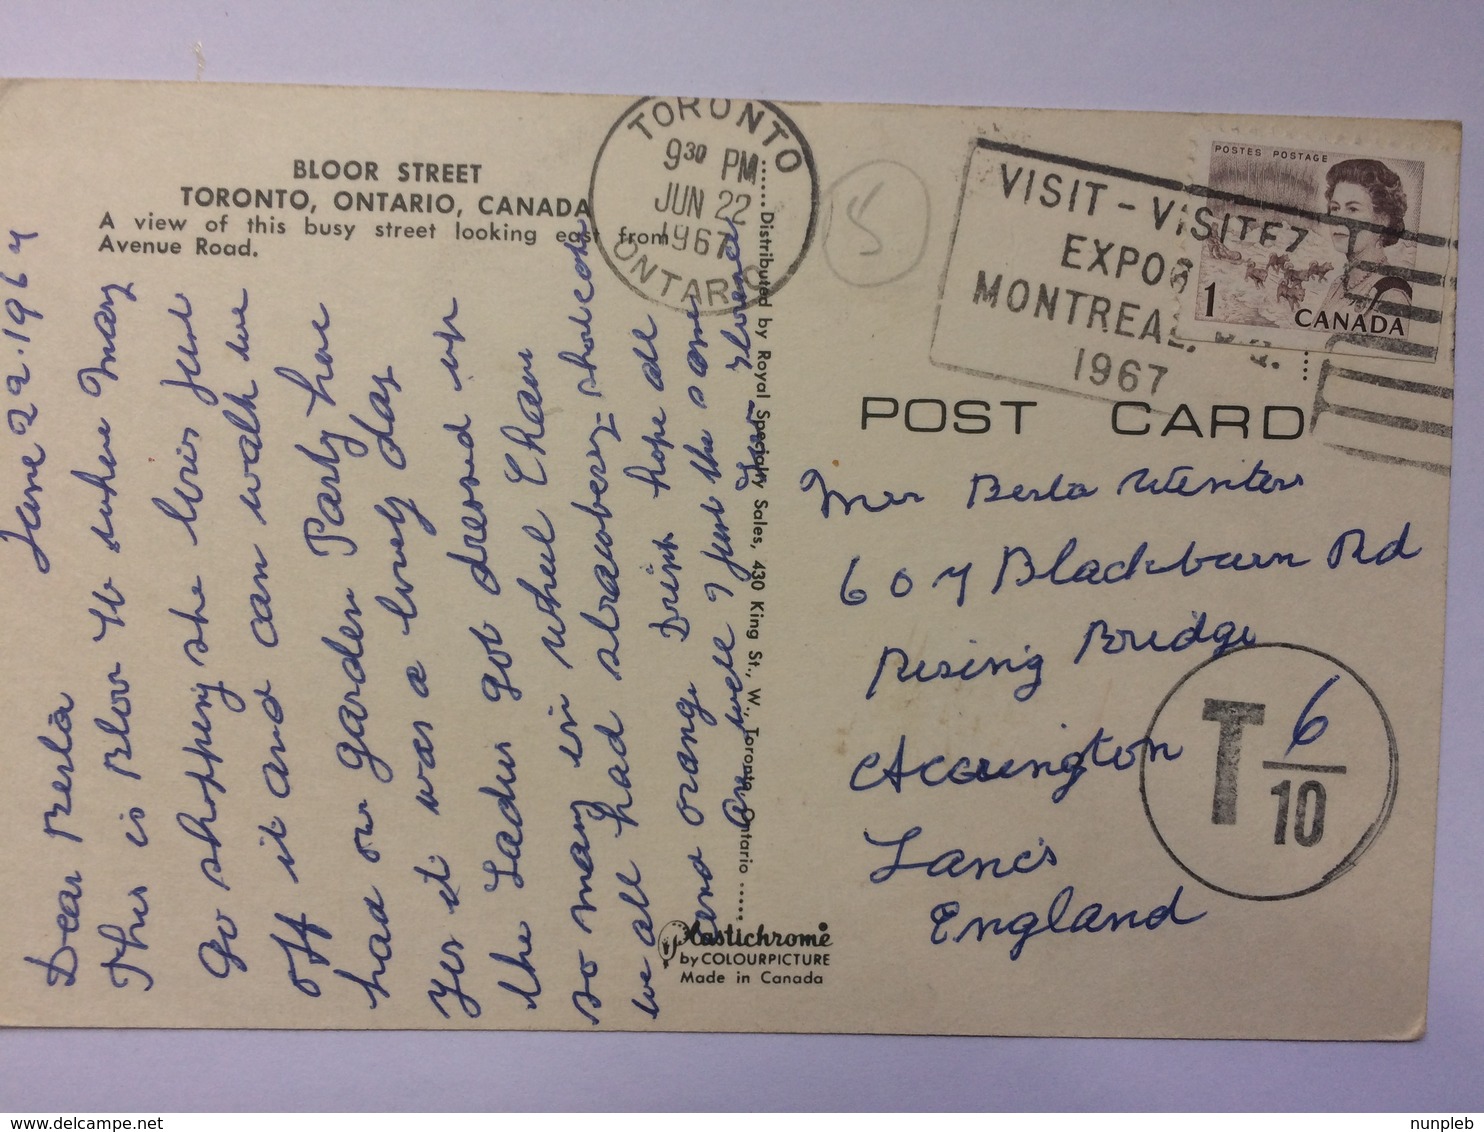 BLOOR STREET
TORONTO, ONTARIO, CANADA
A view of this busy street looking east from
Avenue Road.
June 22. 1967
Dear Berla
This is Bloor St where Mary
go shopping she lives just
off it and can walk we
had our garden Party here
Yes it was a lovely day
the Ladies got dressed up
so many in wheel Chairs
we all had strawberrey = shortcake
and orange Drink hope all
are well I just the same
Florence
Distributed by Royal Specialty Sales, 430 King St., W., Toronto, Ontario
Plastichrome
by COLOURPICTURE
Made in Canada
TORONTO
9 30 PM
JUN 22
1967
ONTARIO
5
VISIT - VISITEZ
EXPO 6
MONTREAL
1967
POSTES POSTAGE
1
CANADA
POST CARD
Mrs Berla Winters
607 Blackburn Rd
Rising Bridge
Accrington
Lancs
England
T 6/10
nunpleb
www.delcampe.net